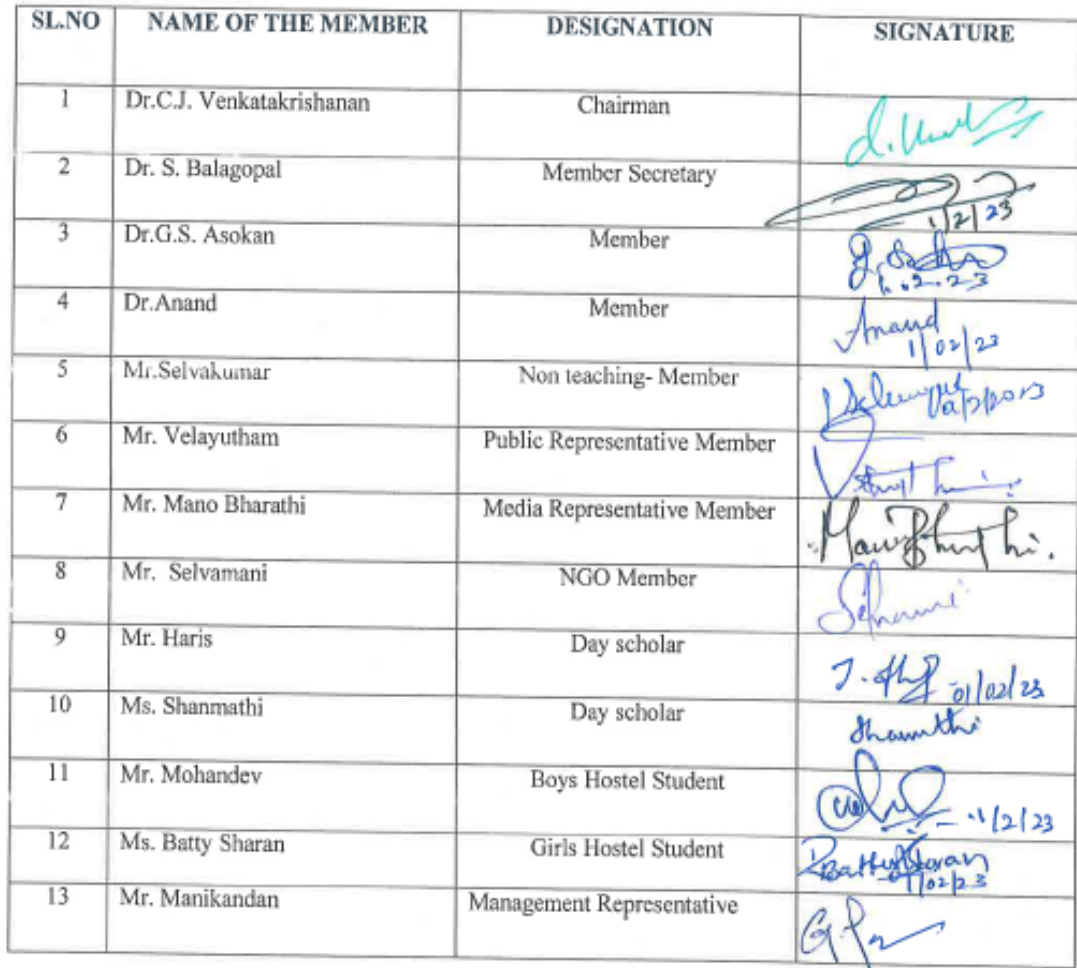 SL.NO NAME OF THE MEMBER DESIGNATION SIGNATURE
1 Dr.C.J. Venkatakrishanan Chairman
2 Dr. S. Balagopal Member Secretary 1/2/23
3 Dr.G.S. Asokan Member 1.02.23
4 Dr.Anand Member Anand 1/02/23
5 Mr.Selvakumar Non teaching- Member
6 Mr. Velayutham Public Representative Member
7 Mr. Mano Bharathi Media Representative Member
8 Mr. Selvamani NGO Member
9 Mr. Haris Day scholar 01/02/23
10 Ms. Shanmathi Day scholar
11 Mr. Mohandev Boys Hostel Student 1/2/23
12 Ms. Batty Sharan Girls Hostel Student 1/02/23
13 Mr. Manikandan Management Representative